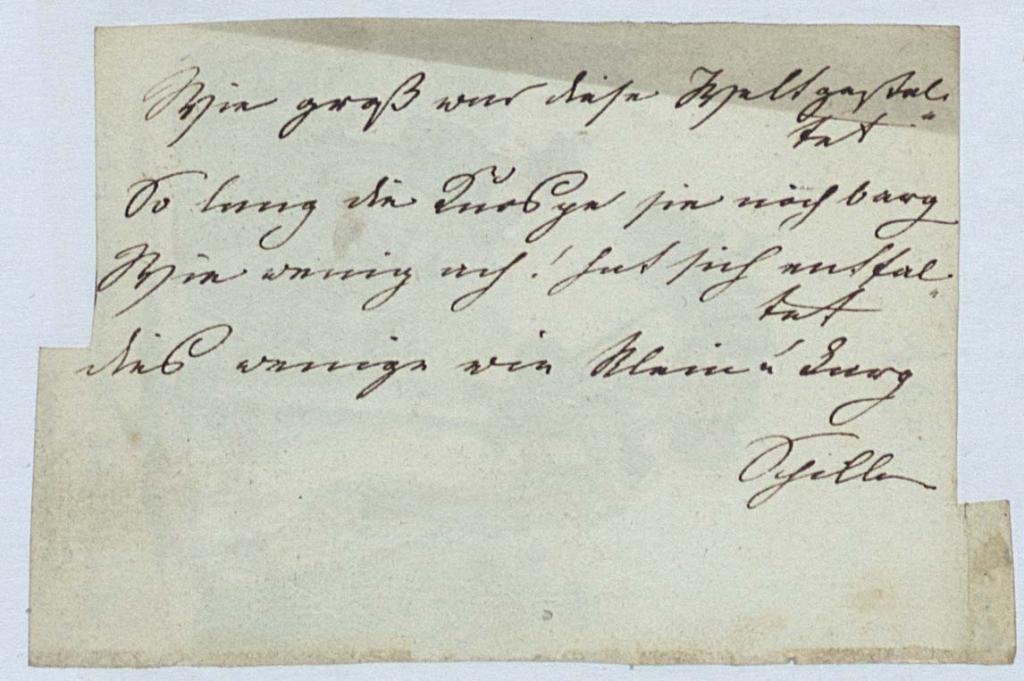 Wie groß war diese Welt gestal-
tet
So lang die Knospe sie noch barg
Wie wenig ach! hat sich entfal-
tet
dies wenige wie klein u karg
Schiller